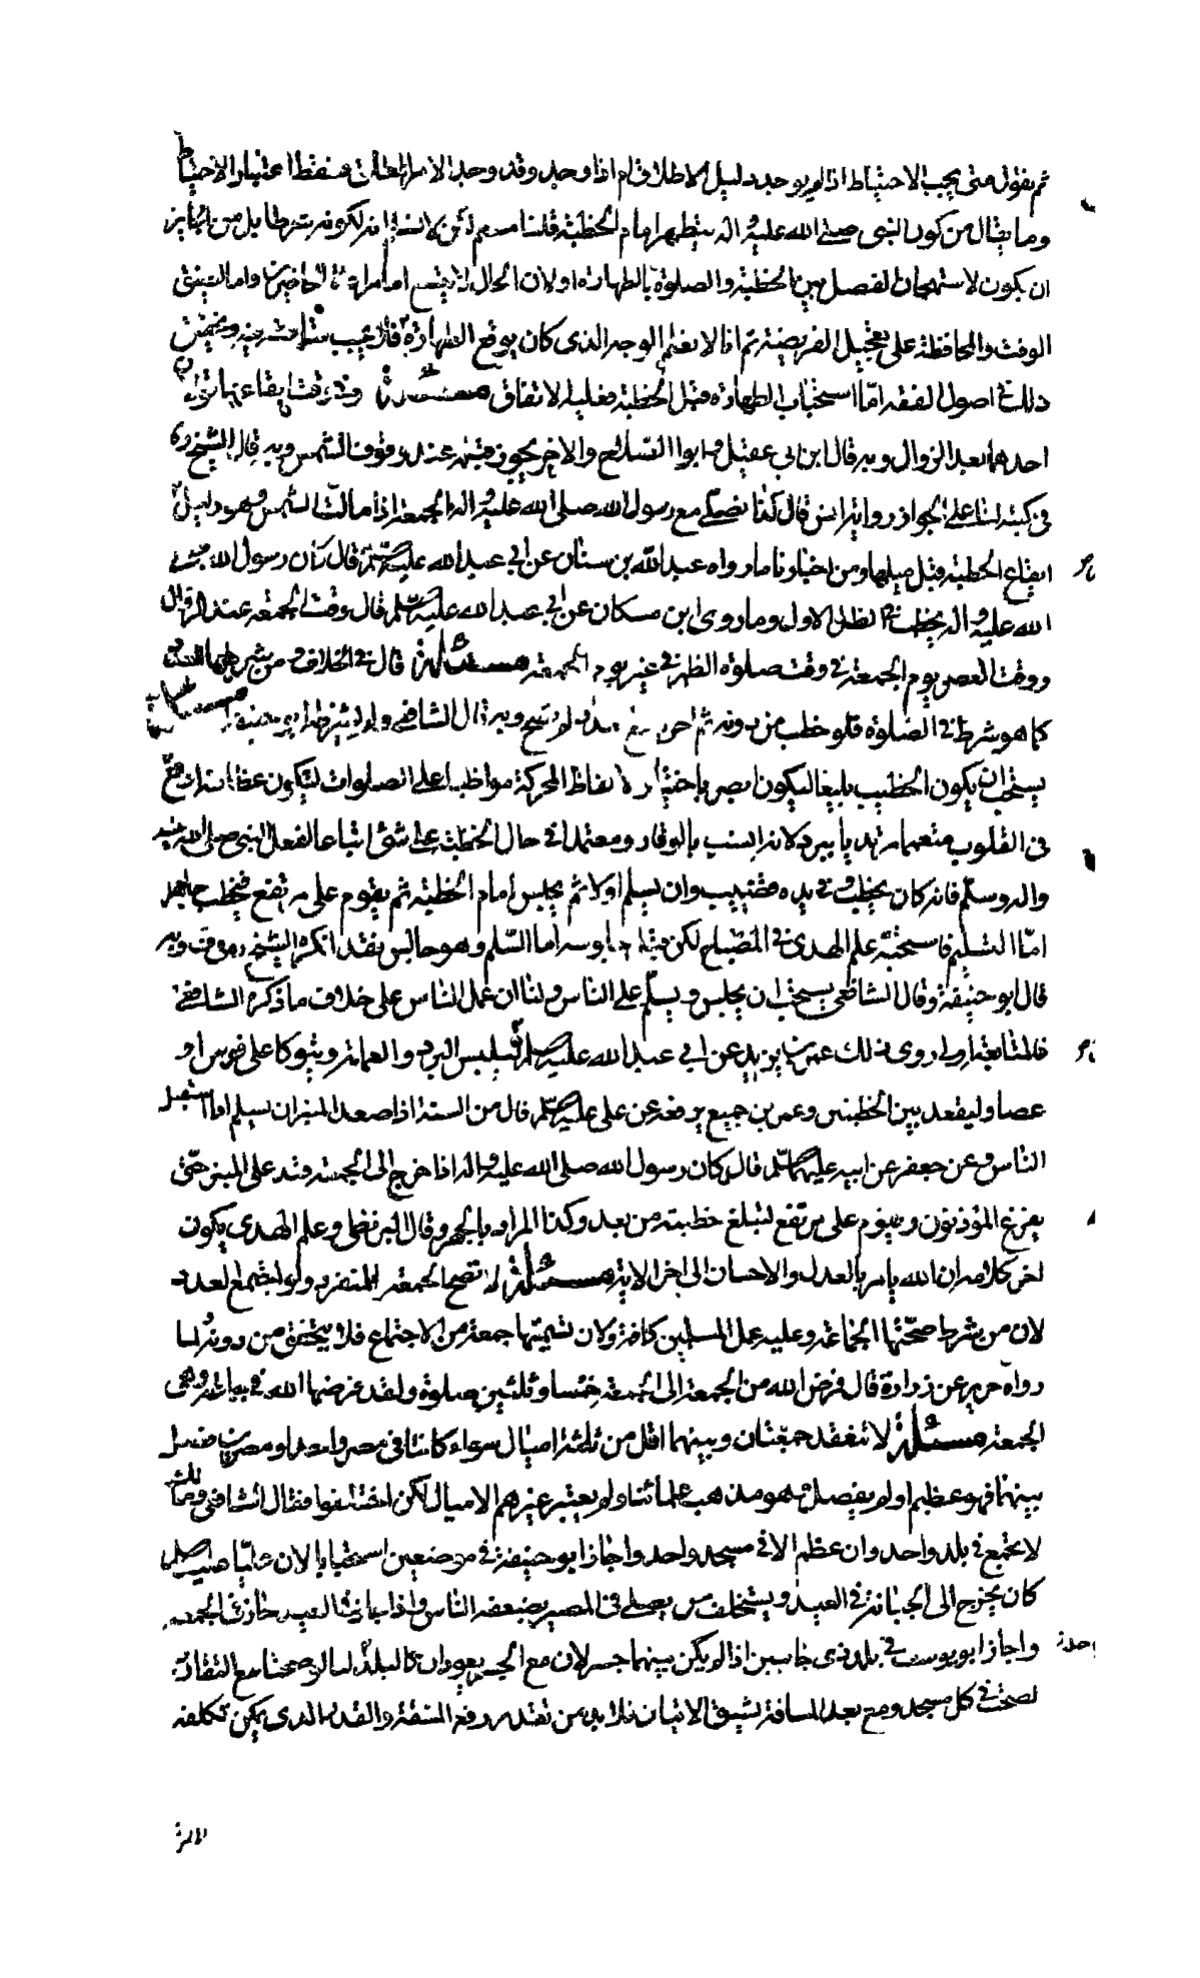 ثم نقول متى يجب الاحتياط اذا لم يوجد دليل الاطلاق ام اذا وجد وقد وجد الامر المطلق فسقط اعتبار الاحتياط
وما يقال من كون النبى صلى الله عليه واله يتطهر امام الخطبة قلنا مسلم لكن لا نسلم انه لكونه شرطا بل من الجايز
ان يكون لاستهجان الفصل بين الخطبة والصلوة بالطهارة او لان الحال لا يتسع اما لمراعاة الحاضرين واما لضيق
الوقت والمحافظة على تعجيل الفريضة ثم انا لا نعلم الوجه الذى كان يوقع الطهارة فلا يجب متابعته فيه وتحقيق
ذلك فى اصول الفقه امّا استحباب الطهارة قبل الخطبة فعليه الاتفاق مسئلة وفى وقت ايقاعها قولان
احدهما بعد الزوال وبه قال ابن ابى عقيل وابوا الصلاح والاخر يجوز قبله عند وقوف الشمس وبه قال الشيخ ره
فى كتبه لنا على الجواز رواية انس قال كنا نصلى مع رسول الله صلى الله عليه واله الجمعة اذا مالت الشمس وهو دليل
ايقاع الخطبة قبل ميلها ومن اخبارنا ما رواه عبد الله بن سنان عن ابى عبد الله عليه السلم قال كان رسول الله صلى
الله عليه واله يخطب فى الظل الاول وما روى ابن مسكان عن ابى عبد الله عليه السلم قال وقت الجمعة عند الزوال
ووقت العصر يوم الجمعة فى وقت صلوة الظهر فى غير يوم الجمعة مسئلة قال فى الخلاف من شرطها العدد
كما هو شرط فى الصلوة فلو خطب من دونه ثم احرم مع العدد لم تصح وبه قال الشافعى ولم يشترط ابو حنيفة مسئلة
يستحب ان يكون الخطيب بليغا ليكون بصيرا باختيار الالفاظ المحركة مواظبا على الصلوات ليكون عظاته اوقع
فى القلوب متعمما مرتديا ببرد لانه انسب بالوقار ومعتمدا فى حال الخطبة على شئ اتباعا لفعل النبى صلى الله عليه
واله وسلم فانه كان يخطب وفى يده قضيب وان يسلم اولا ثم يجلس امام الخطبة ثم يقوم على مرتفع فيخطب جاهرا
امّا التسليم فاستحبّه علم الهدى فى المصباح لكن قبل جلوسه اما السّلم وهو جالس فقد انكره الشيخ فى ف وبه
قال ابو حنيفة وقال الشافعى يستحب ان يجلس ويسلّم على الناس ولنا ان عمل الناس على خلاف ما ذكره الشافعى
فالمتابعة اولى روى ذلك عمر بن يزيد عن ابى عبد الله عليه السلم قال يلبس البرد والعمامة ويتوكا على قوس او
عصا وليقعد بين الخطبتين وعمرو بن جميع يرفعه عن على عليه السلم قال من السنة اذا صعد المنبر ان يسلم اذا استقبل
الناس وعن جعفر عن ابيه عليهما السلم قال كان رسول الله صلى الله عليه واله اذا خرج الى الجمعة قعد على المنبر حتى
يفرغ المؤذنون ويقوم على مرتفع لتبلغ خطبته من بعد وكذا المراد بالجهر وقال البزنطى وعلم الهدى يكون
اخر كلامه ان الله يامر بالعدل والاحسان الى اخر الاية مسئلة لا تصح الجمعة للمنفرد ولو اجتمع العدد
لان من شرط صحّتها الجماعة وعليه عمل المسلمين كافة ولان تسميتها جمعة من الاجتماع فلا يتحقق من دونه لما
رواه حريز عن زرارة قال فرض الله من الجمعة الى الجمعة خمسا وثلثين صلوة واحدة فرضها الله فى جماعة وهى
الجمعة مسئلة لا تنعقد جمعتان وبينهما اقل من ثلثة اميال سواء كانتا فى مصر واحد او مصرين فصل
بينهما نهر عظيم او لم يفصل وهو مذهب علمائنا ولم يعتبر غيرهم الاميال لكن اختلفوا فقال الشافعى ومالك
لا يجمع فى بلد واحد وان عظم الا فى مسجد واحد واجاز ابو حنيفة فى موضعين استحبابا لان عليّا عليه السلم
كان يخرج الى الجبانة فى العيد ويستخلف من يصلى فى المصر بضعفة الناس واذا جاز فى العيد جاز فى الجمعة
واجاز ابو يوسف فى بلد ذى جانبين اذا لم يكن بينهما جسر لان مع الجسر يعودان كالبلد لنا لو صحتا مع التقارب
لصحت فى كل مسجد ومع بعد المسافة يشق الاتيان فلا بد من تقدير يرفع المشقة والقدر الذى يمكن تكلفه